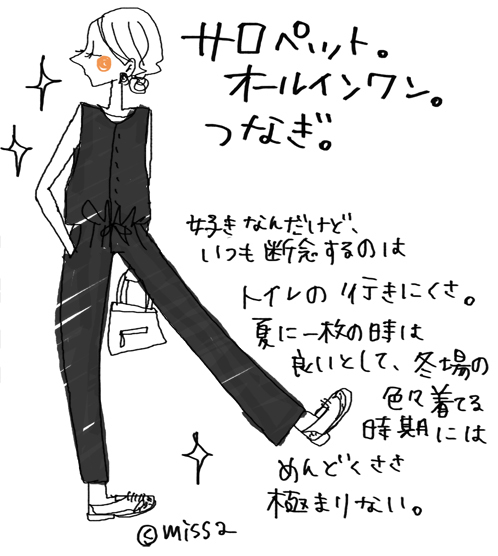 サロペット。
オールインワン。
つなぎ。
好きなんだけど、
いつも断念するのは
トイレの行きにくさ。
夏に一枚の時は
良いとして、冬場の
色々着てる
時期には
めんどくささ
極まりない。
©missa